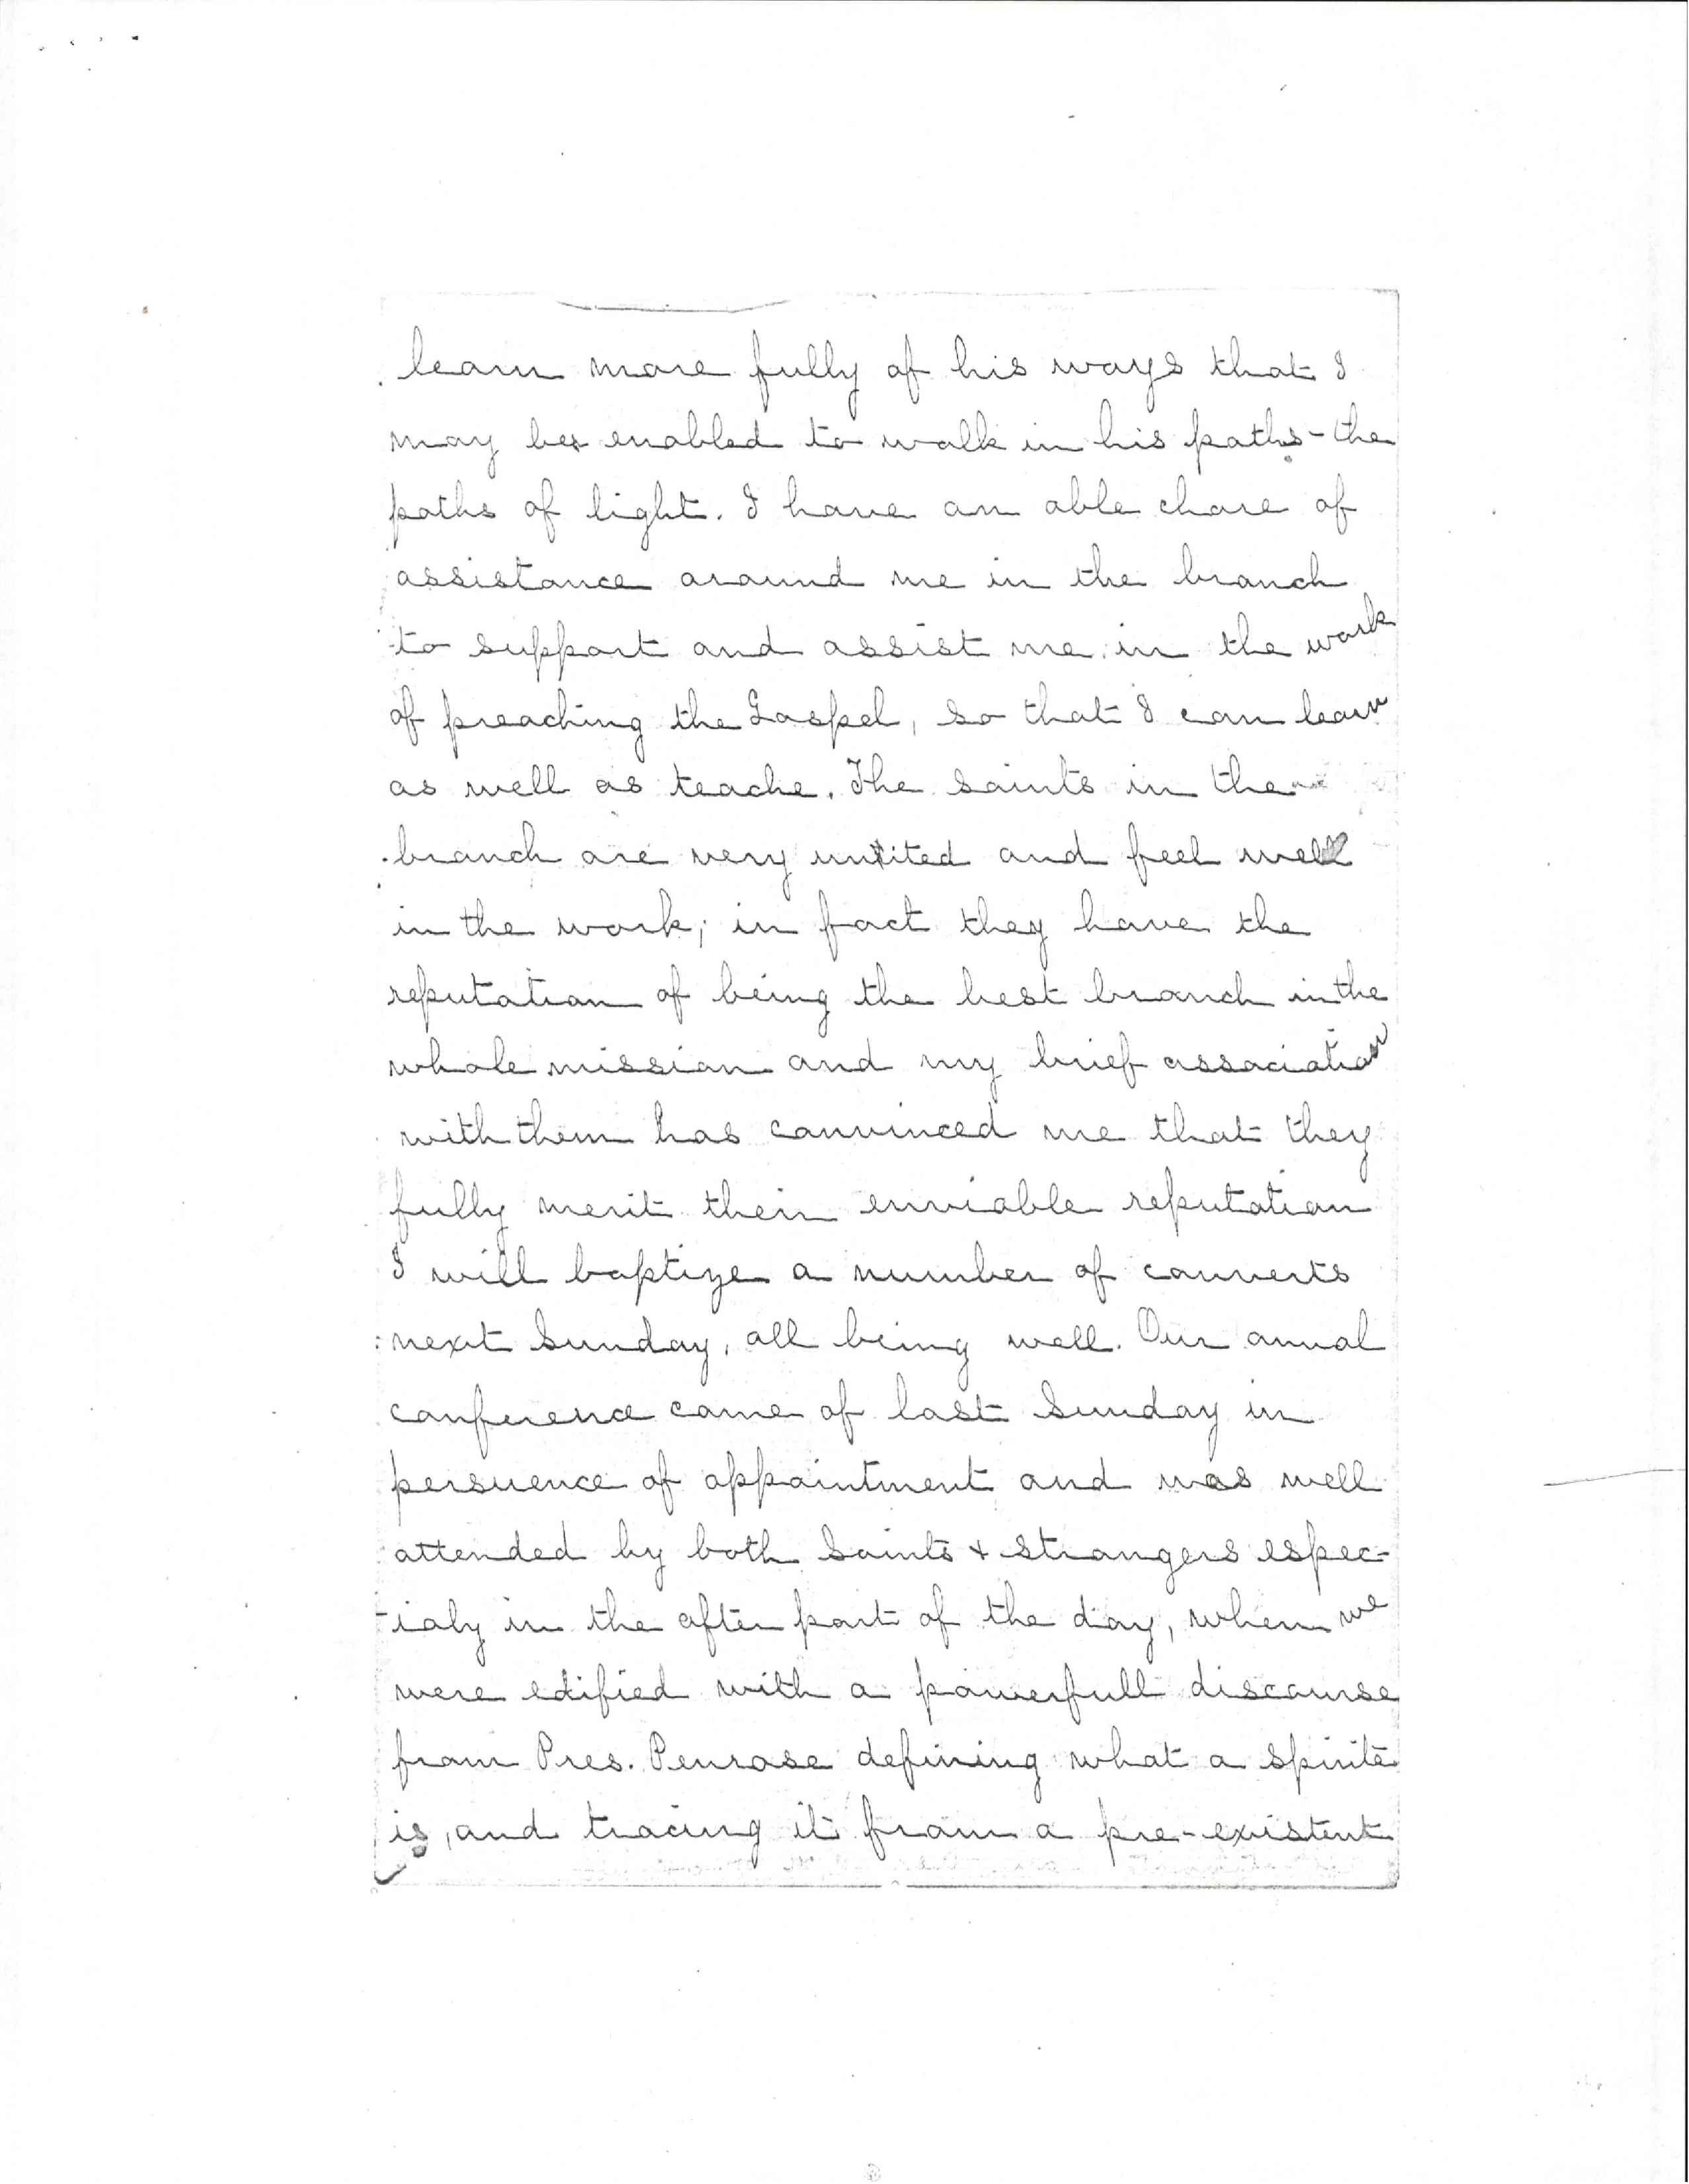 learn more fully of his ways that I
may be enabled to walk in his paths - the
paths of light. I have an able chore of
assistance around me in the branch
to support and assist me in the work
of preaching the Gospel, so that I can learn
as well as teache. The saints in the
branch are very united and feel well
in the work; in fact they have the
reputation of being the best branch in the
whole mission and my brief association
with them has convinced me that they
fully merit their enviable reputation
I will baptize a number of converts
next Sunday, all being well. Our anual
conference came of last Sunday in
persuence of appointment and was well
attended by both Saints + strangers espec-
-ialy in the after part of the day, when we
were edified with a powerfull discourse
from Pres. Penrose defining what a spirite
is, and tracing it from a pre-existent